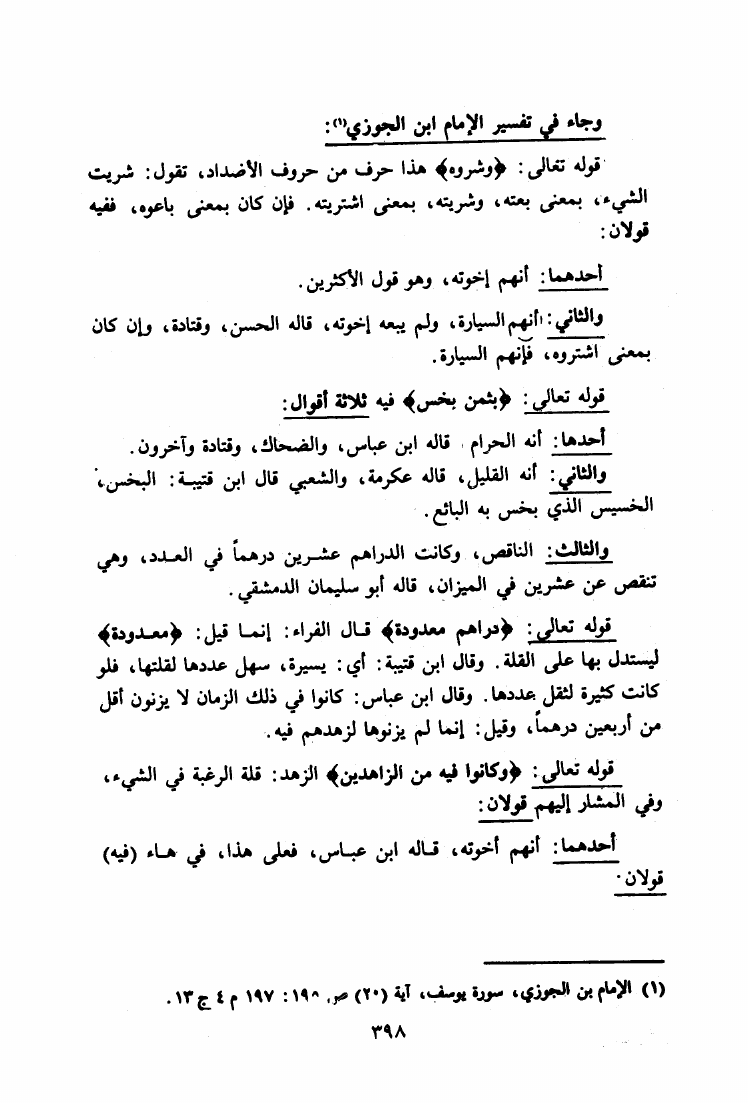 وجاء في تفسير الإمام ابن الجوزي(١):
قوله تعالى: ﴿وشروه﴾ هذا حرف من حروف الأضداد، تقول: شريت
الشيء، بمعنى بعته، وشريته، بمعنى اشتريته. فإن كان بمعنى باعوه، ففيه
قولان:
أحدهما: أنهم إخوته، وهو قول الأكثرين.
والثاني: أنهم السيارة، ولم يبعه إخوته، قاله الحسن، وقتادة، وإن كان
بمعنى اشتروه، فإنهم السيارة.
قوله تعالى: ﴿بثمن بخس﴾ فيه ثلاثة أقوال:
أحدها: أنه الحرام قاله ابن عباس، والضحاك، وقتادة وآخرون.
والثاني: أنه القليل، قاله عكرمة، والشعبي قال ابن قتيبة: البخس،
الخسيس الذي بخس به البائع.
والثالث: الناقص، وكانت الدراهم عشرين درهماً في العدد، وهي
تنقص عن عشرين في الميزان، قاله أبو سليمان الدمشقي.
قوله تعالى: ﴿دراهم معدودة﴾ قال الفراء: إنما قيل: ﴿معدودة﴾
ليستدل بها على القلة. وقال ابن قتيبة: أي: يسيرة، سهل عددها لقلتها، فلو
كانت كثيرة لثقل عددها. وقال ابن عباس: كانوا في ذلك الزمان لا يزنون أقل
من أربعين درهماً، وقيل: إنما لم يزنوها لزهدهم فيه.
قوله تعالى: ﴿وكانوا فيه من الزاهدين﴾ الزهد: قلة الرغبة في الشيء،
وفي المشار إليهم قولان:
أحدهما: أنهم أخوته، قاله ابن عباس، فعلى هذا، في هاء (فيه)
قولان.
(١) الإمام بن الجوزي، سورة يوسف، آية (٢٠) ص ١٩٨: ١٩٧ م ٤ ج ١٣.
٣٩٨